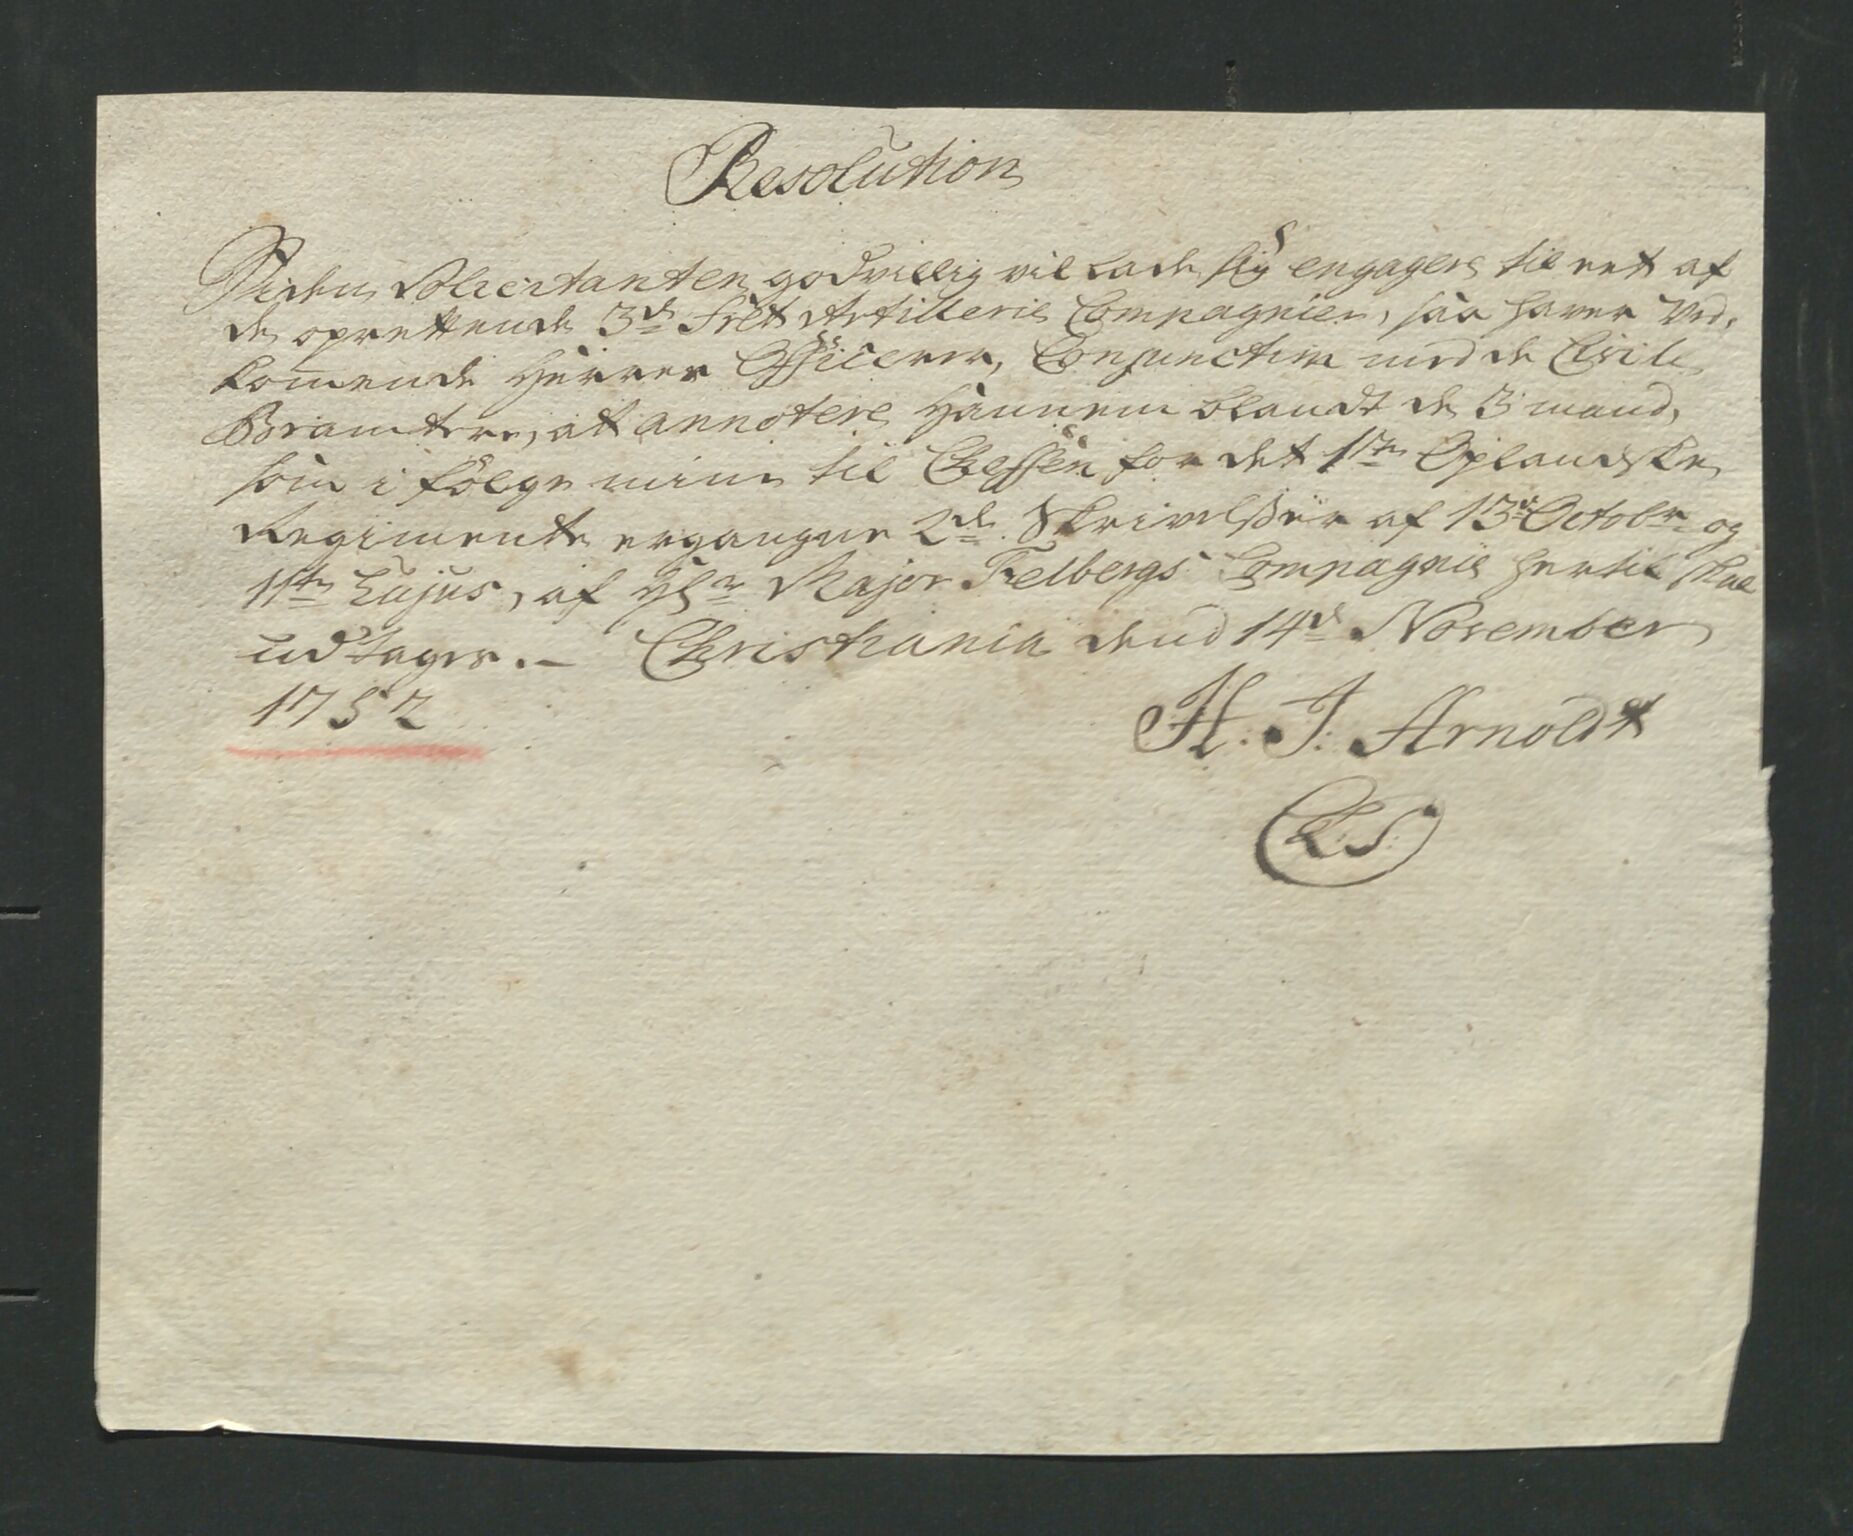 Resolution
Siden Solicitanten godvillig vil lade sig engagere til eet af
de oprettende 3de Artillerie Compagnier, saa haver Ved,
kommende Herrer Officerer, Conjunctim med de Civile
Beamtere, at annotere hannem blandt de 3 mand,
som i følge mine til Cheffen for det 1ste Oplandske
Regimente ergangne 2de Skrivelßer af 13de Octobr og
11te hujus, af Hr Major Felbergs Compagnie hertil skal
udtages.- Christiania dend 14de November
1752
H: J: Arnoldt
L:S: